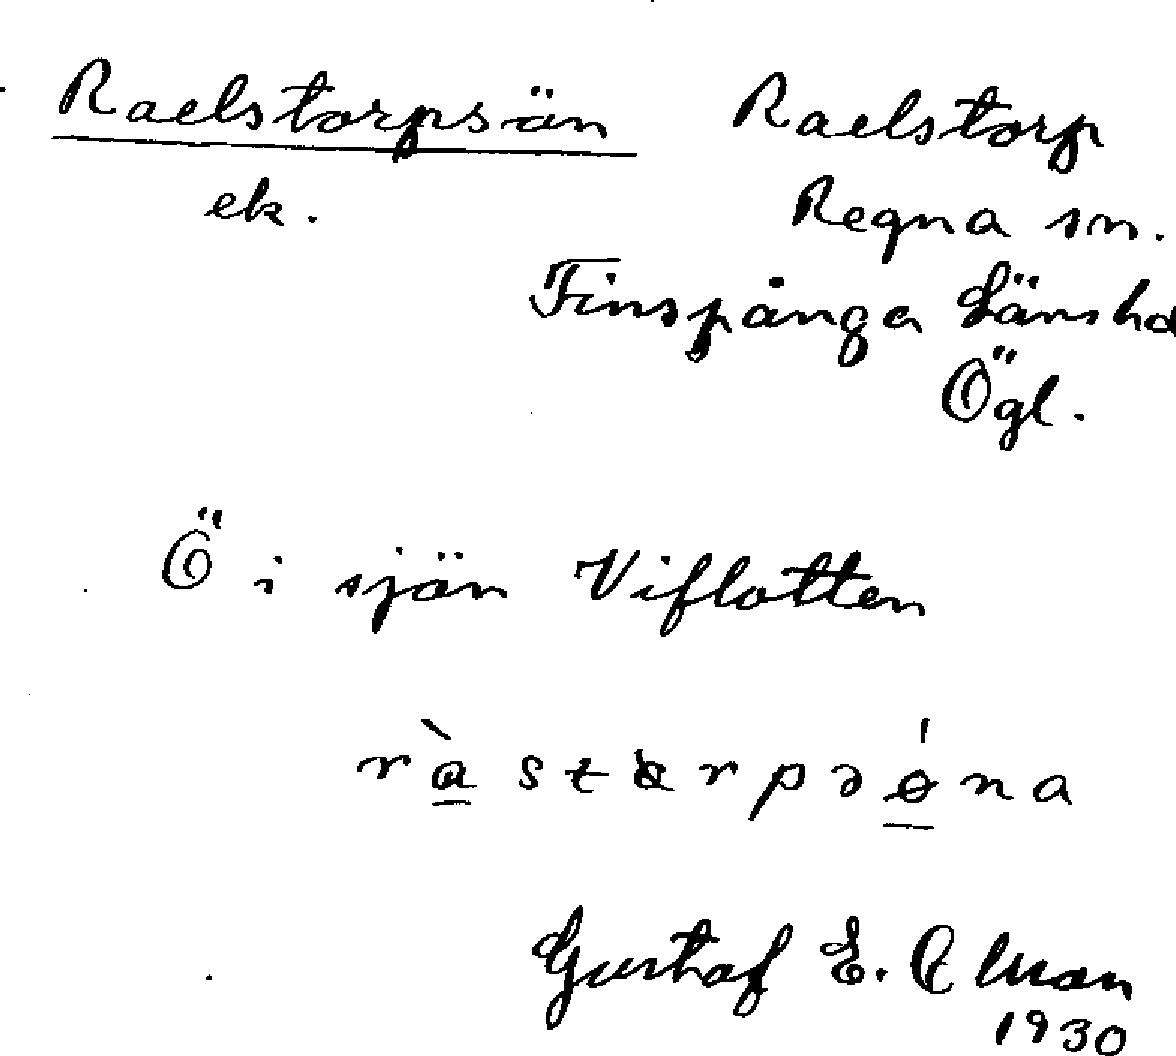 Raelstorpsön Raelstorp
ek. Regna sn.
Finspånga Länshd
Ögl.
Ö i sjön Viflotten
Gustaf E.
1930